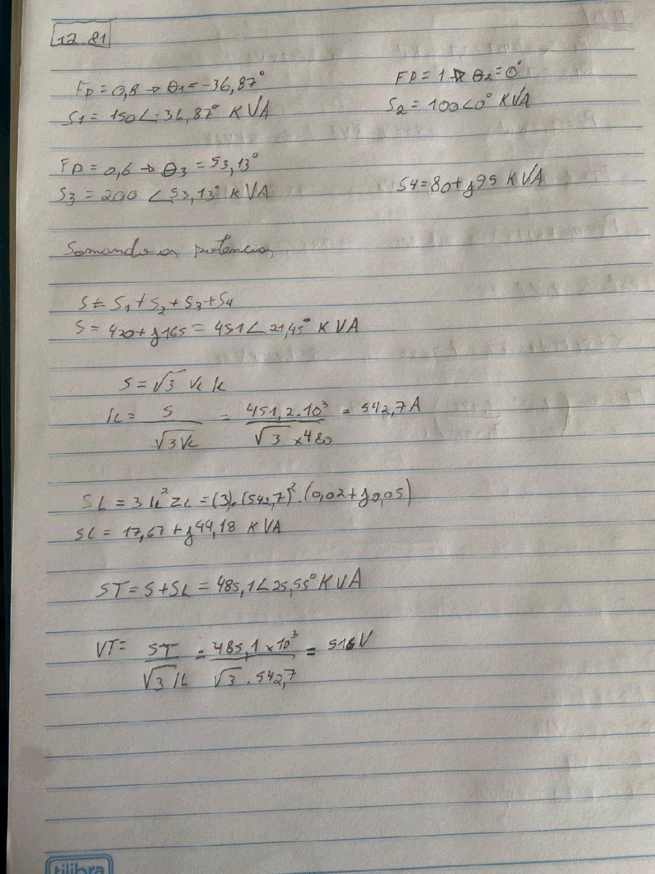 12.81
FP = 0,8 → θ1 = -36,87°
S1 = 150∠-36,87° KVA
FP = 1 → θ2 = 0°
S2 = 100∠0° KVA
FP = 0,6 → θ3 = 53,13°
S3 = 200 ∠53,13° KVA
S4 = 80 + j95 KVA
Somando as potencias
S = S1 + S2 + S3 + S4
S = 420 + j165 = 451∠21,45° KVA
S = √3 VL IL
IL = S / √3 VL = 451,2.10³ / √3 x 480 = 542,7 A
SL = 3 IL² ZL = (3).(542,7)².(0,02 + j0,05)
SL = 17,67 + j44,18 KVA
ST = S + SL = 485,1∠25,55° KVA
VT = ST / √3 IL = 485,1 x 10³ / √3 . 542,7 = 516 V
tilibra